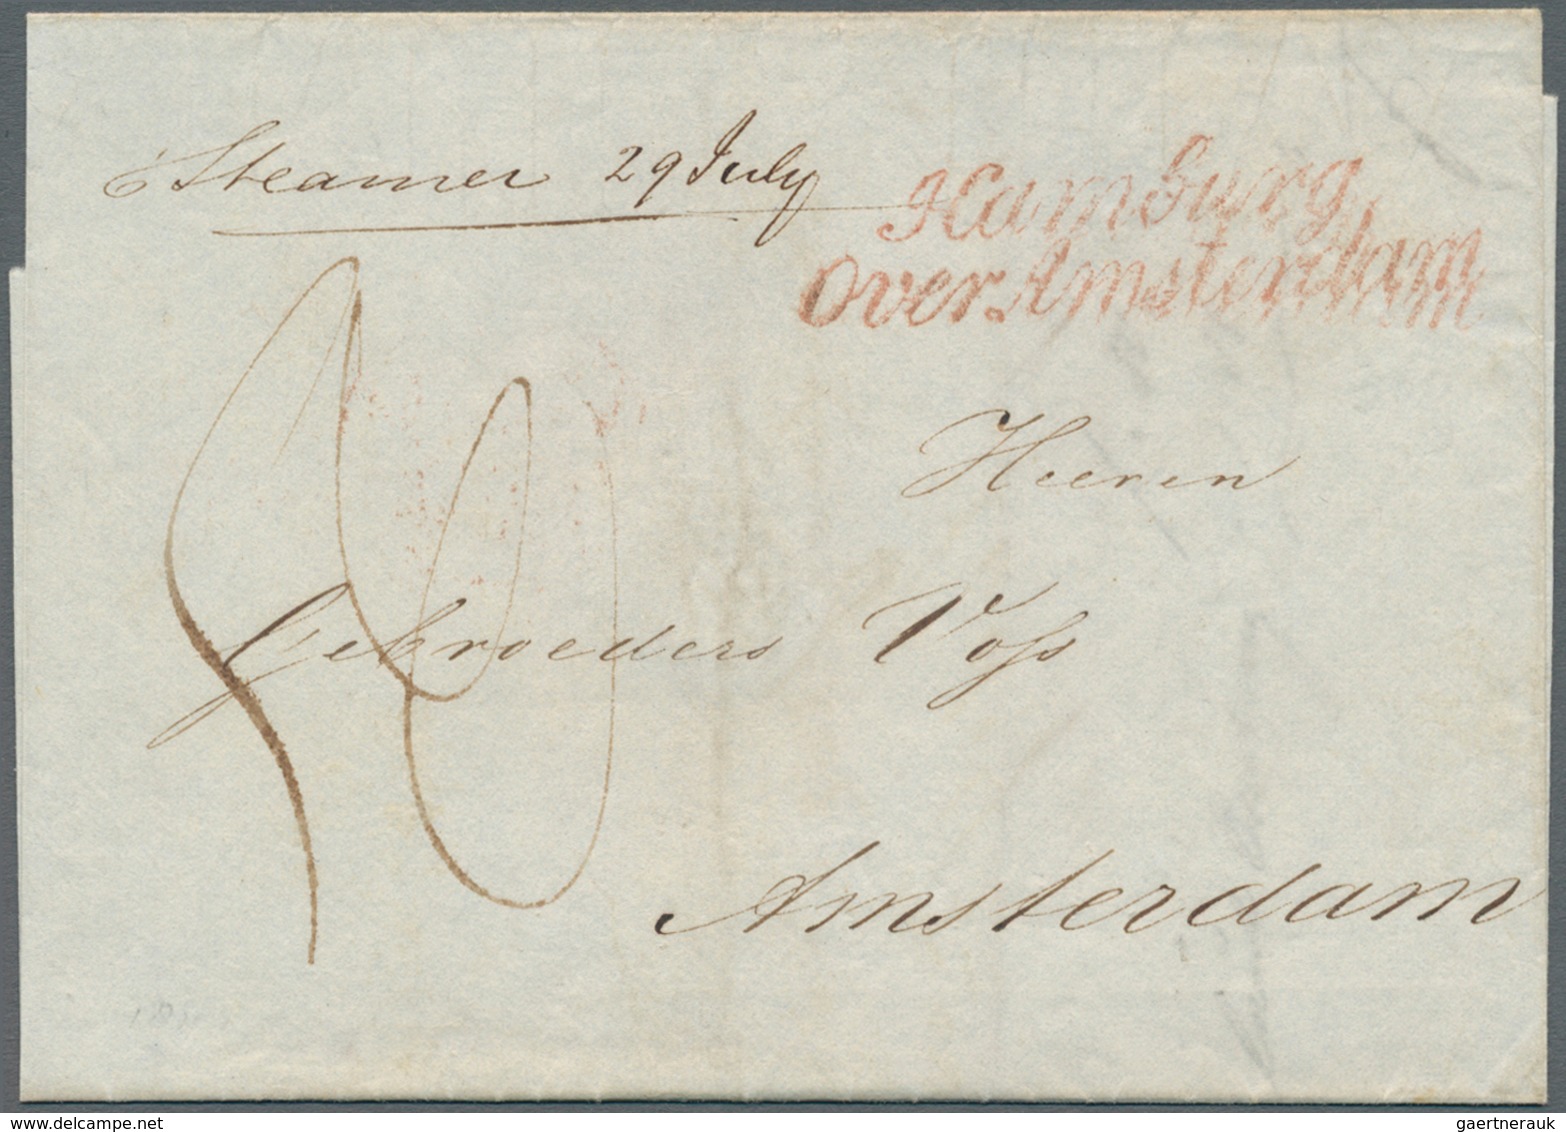 Steamer 29 July
Hamburg
Over Amsterdam
Heeren
Gebroeders Voſs
Amsterdam
www.delcampe.net
gaertnerauk